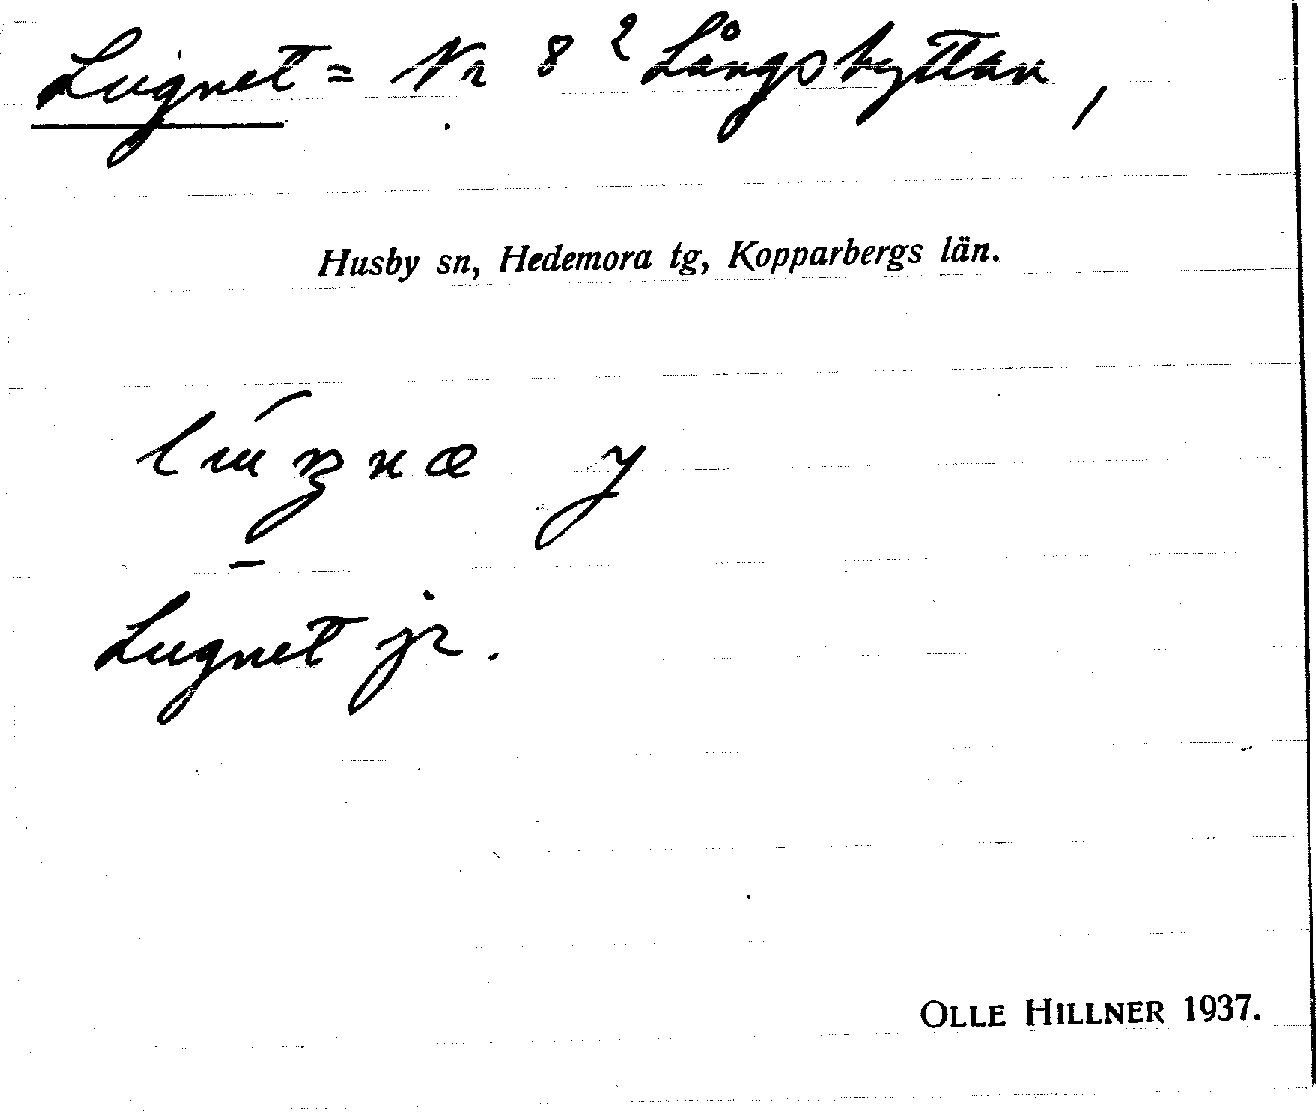 Lugnet = Nr 8² Långshyttan,
Husby sn, Hedemora tg, Kopparbergs län.
Lugnet jr.
OLLE HILLNER 1937.